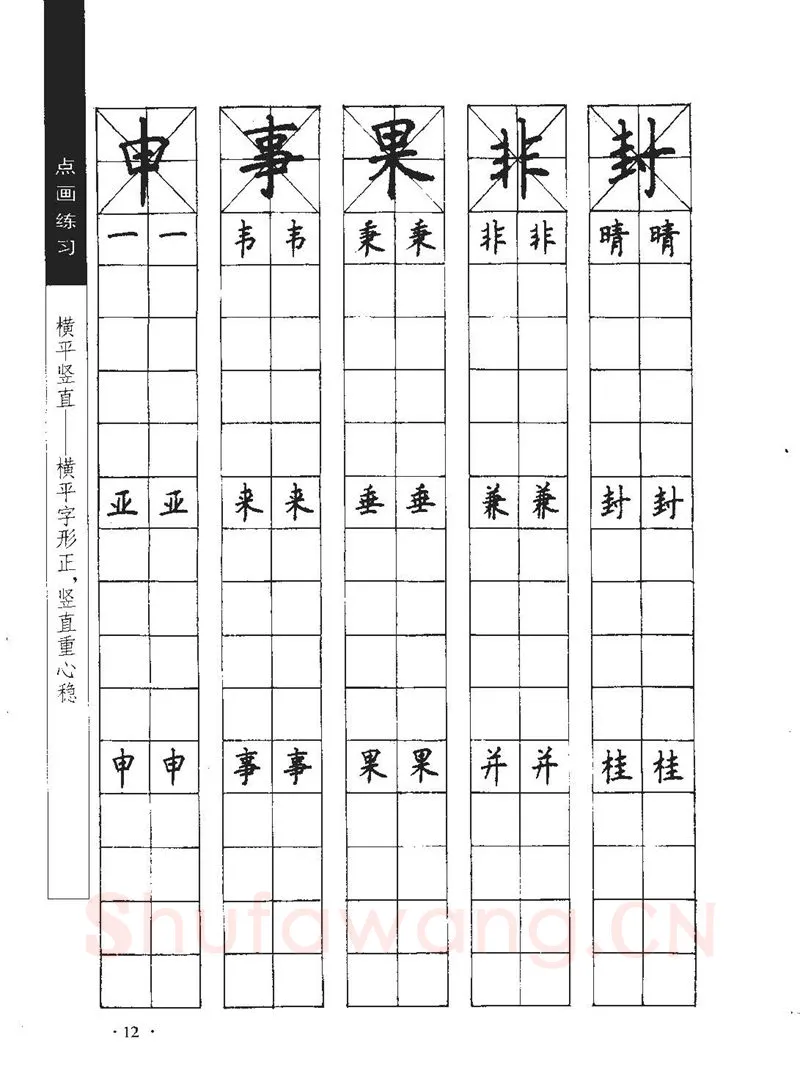 点画练习
横平竖直——横平字形正，竖直重心稳
申 事 果 非 封
一 一 韦 韦 秉 秉 非 非 晴 晴
亚 亚 来 来 垂 垂 兼 兼 封 封
申 申 事 事 果 果 并 并 桂 桂
Shufawang.CN
·12·